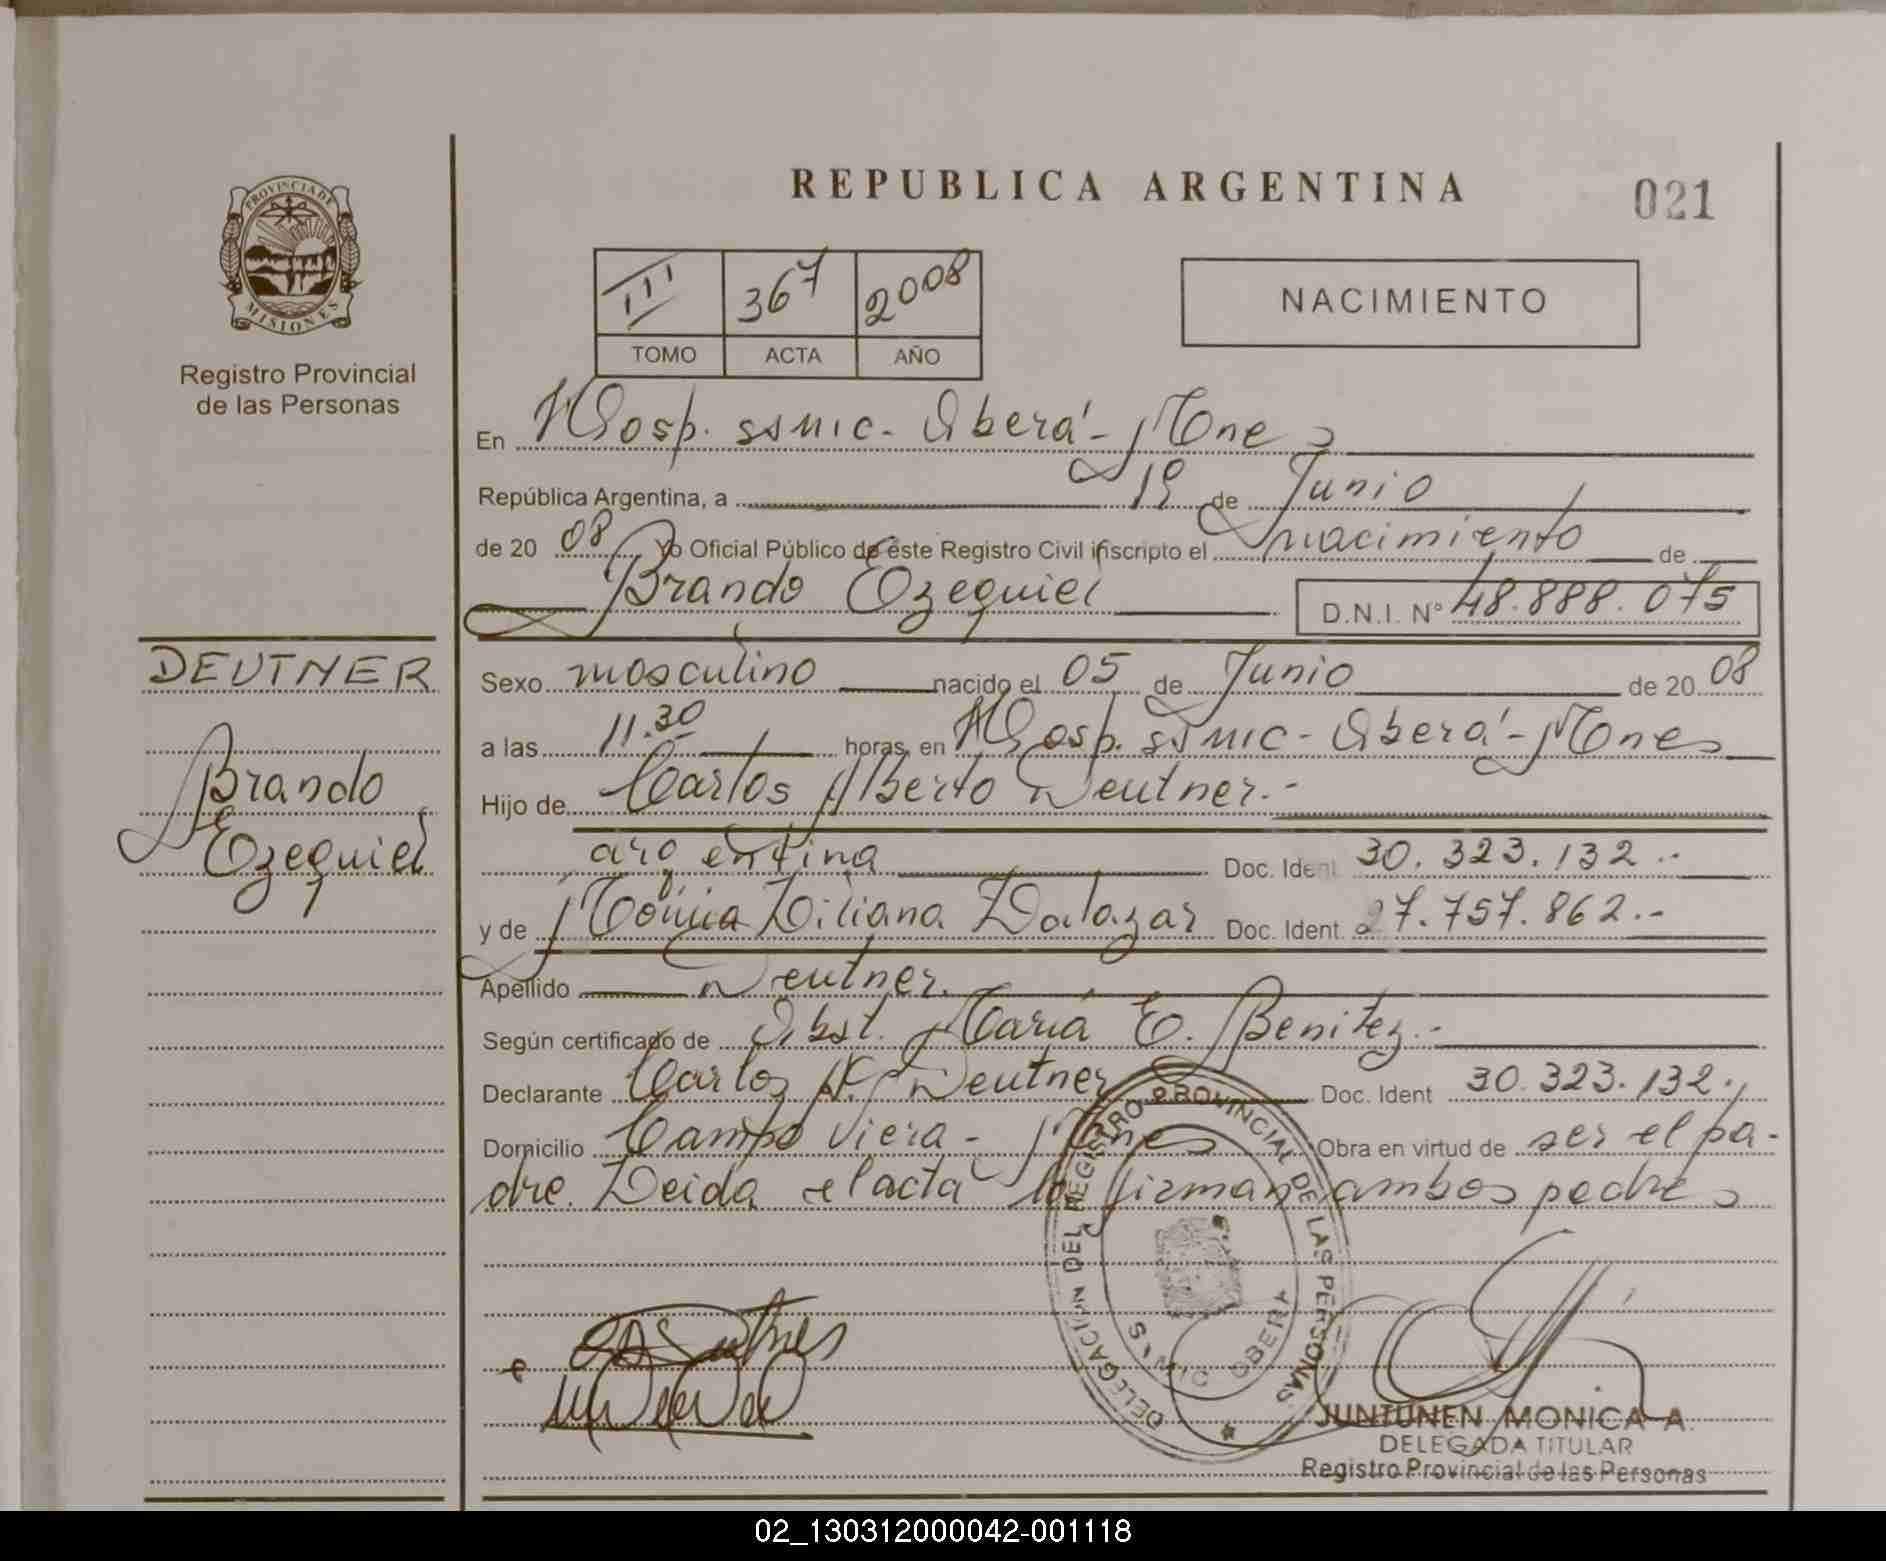 REPUBLICA ARGENTINA
021
PROVINCIA DE
MISIONES
Registro Provincial
de las Personas
III 367 2008
TOMO ACTA AÑO
NACIMIENTO
En Hosp. SSMIC - Oberá - Mnes
República Argentina, a 19 de Junio
de 20 08 Yo Oficial Público de este Registro Civil inscripto el nacimiento de
Brando Ezequiel D.N.I. Nº 48.888.075
DEUTNER
Brando
Ezequiel
Sexo masculino nacido el 05 de Junio de 20 08
a las 11.30 horas, en Hosp. SSMIC - Oberá - Mnes
Hijo de Carlos Alberto Deutner.-
argentina Doc. Ident 30.323.132.-
y de Liliana Dalazar Doc. Ident. 27.757.862.-
Apellido Deutner.
Según certificado de Obst. María E. Benitez.-
Declarante Carlos A. Deutner Doc. Ident 30.323.132.,
Domicilio Campo Viera - Mnes Obra en virtud de ser el pa-
dre. Leida el acta la firman ambos padres
DELEGACION DEL REGISTRO PROVINCIAL DE LAS PERSONAS
OBERA
JUNTUNEN MONICA A.
DELEGADA TITULAR
Registro Provincial de las Personas
02_130312000042-001118